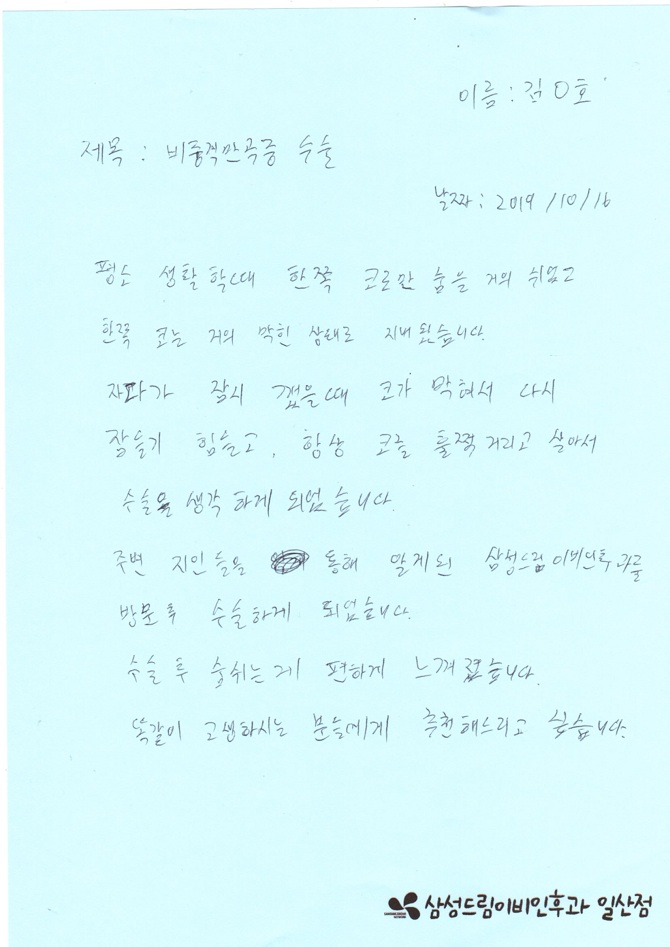 이름 : 김O호
제목 : 비중격만곡증 수술
날짜 : 2019/10/16
평소 생활 할때 한쪽 코로만 숨을 거의 쉬었고
한쪽 코는 거의 막힌 상태로 지내 왔습니다.
자다가 잠시 깼을때 코가 막혀서 다시
잠들기 힘들고, 항상 코를 훌쩍거리고 살아서
수술을 생각 하게 되었습니다.
주변 지인들을 통해 알게된 삼성드림이비인후과를
방문후 수술하게 되었습니다.
수술 후 숨쉬는게 편하게 느껴졌습니다.
똑같이 고생하시는 분들에게 추천해드리고 싶습니다.
삼성드림이비인후과 일산점